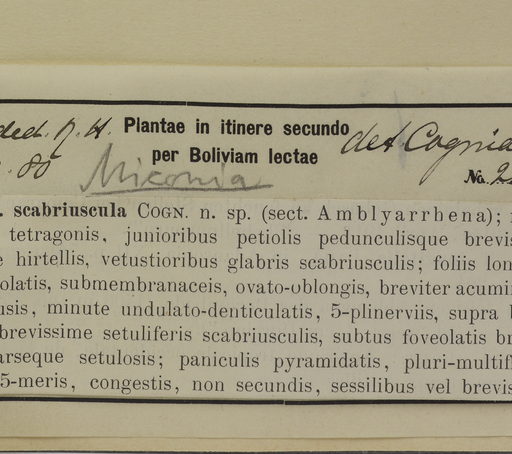 ded. N. H. Plantae in itinere secundo det. Cognia
80 per Boliviam lectae
Miconia No. 2
. scabriuscula COGN. n. sp. (sect. Amblyarrhena);
tetragonis, junioribus petiolis pedunculisque brevis
e hirtellis, vetustioribus glabris scabriusculis; foliis lon
olatis, submembranaceis, ovato-oblongis, breviter acumin
usis, minute undulato-denticulatis, 5-plinerviis, supra l
brevissime setuliferis scabriusculis, subtus foveolatis br
arseque setulosis; paniculis pyramidatis, pluri-multifl
5-meris, congestis, non secundis, sessilibus vel brevis